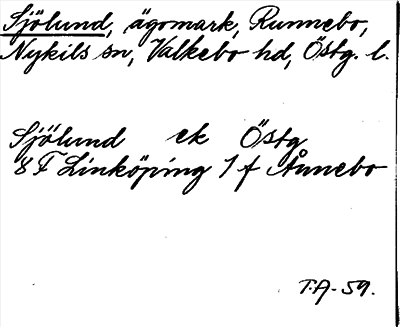 Sjölund, ägomark, Runnebo,
Nykils sn, Valkebo hd, Östg. l.
Sjölund ek Östg
8 F Linköping 1 f Ånnebo
T.A. 59.